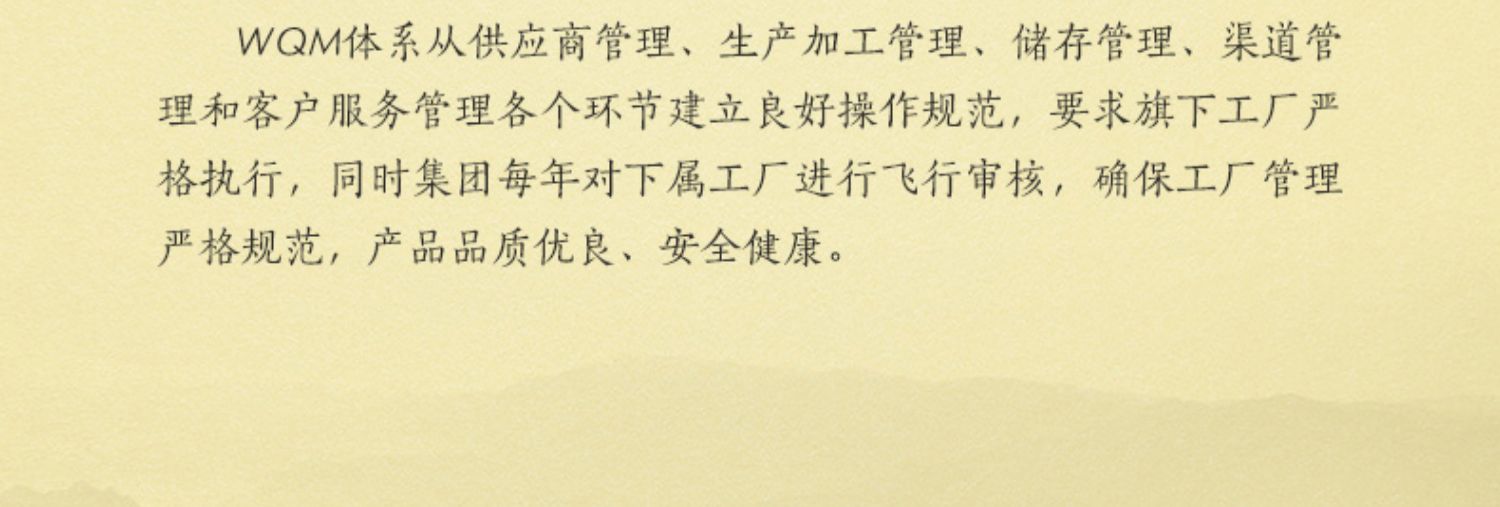 WQM体系从供应商管理、生产加工管理、储存管理、渠道管
理和客户服务管理各个环节建立良好操作规范，要求旗下工厂严
格执行，同时集团每年对下属工厂进行飞行审核，确保工厂管理
严格规范，产品品质优良、安全健康。